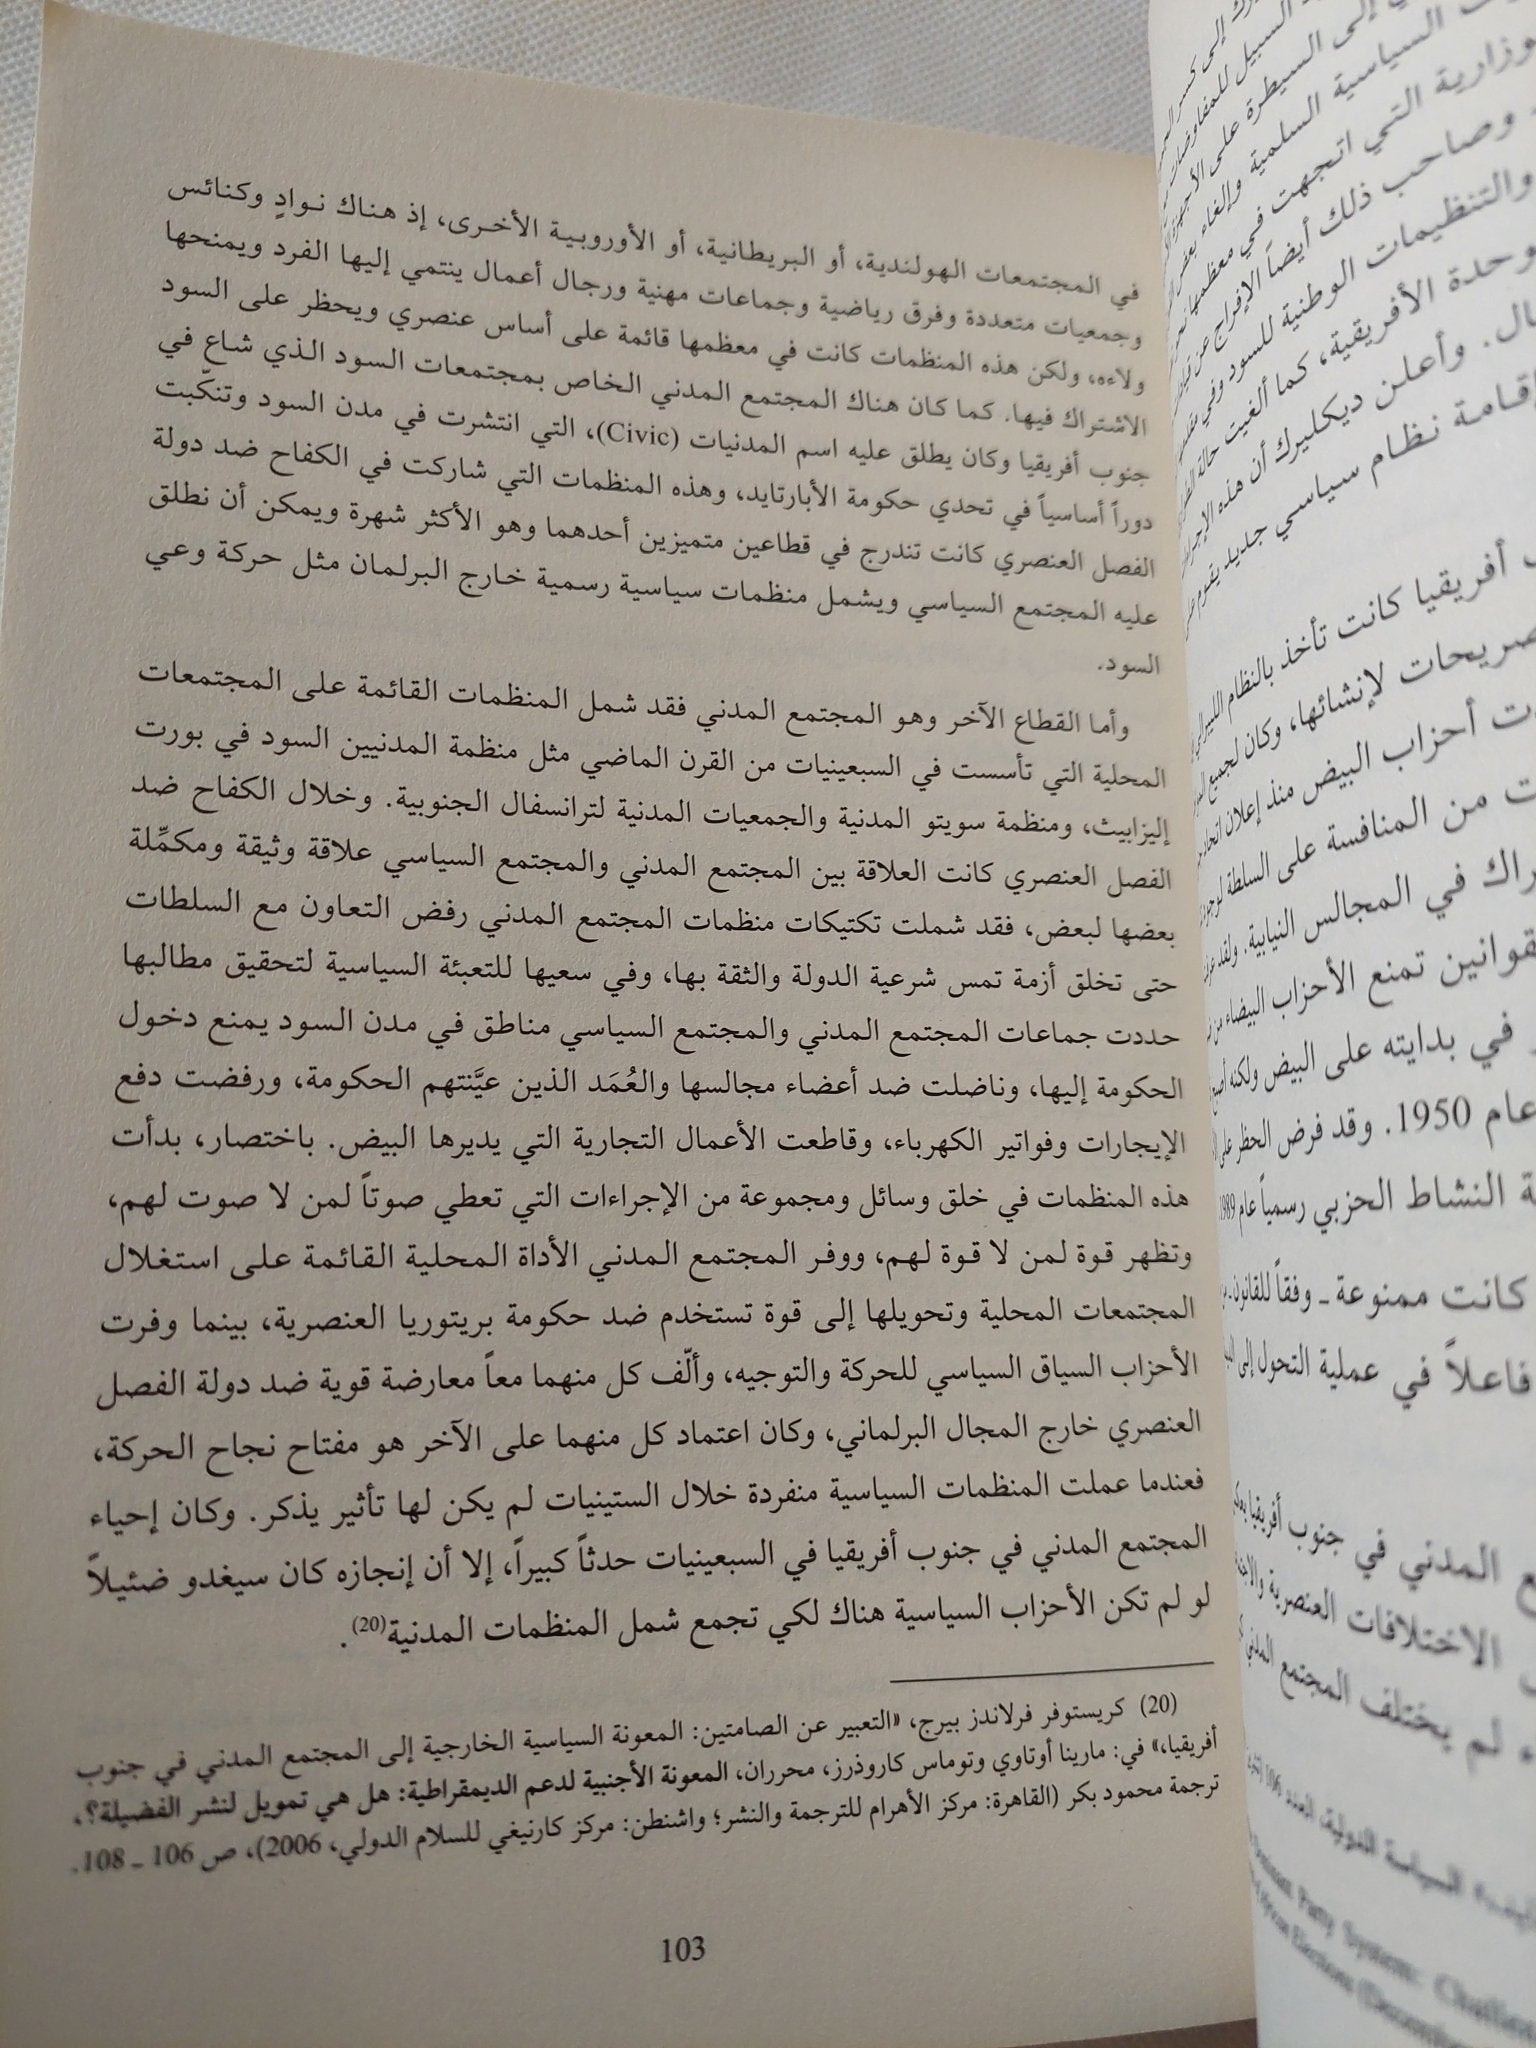 في المجتمعات الهولندية، أو البريطانية، أو الأوروبية الأخرى، إذ هناك نوادٍ وكنائس
وجمعيات متعددة وفرق رياضية وجماعات مهنية ورجال أعمال ينتمي إليها الفرد ويمنحها
ولاءه، ولكن هذه المنظمات كانت في معظمها قائمة على أساس عنصري ويحظر على السود
الاشتراك فيها. كما كان هناك المجتمع المدني الخاص بمجتمعات السود الذي شاع في
جنوب أفريقيا وكان يطلق عليه اسم المدنيات (Civic)، التي انتشرت في مدن السود وتنكّبت
دوراً أساسياً في تحدي حكومة الأبارتايد، وهذه المنظمات التي شاركت في الكفاح ضد دولة
الفصل العنصري كانت تندرج في قطاعين متميزين أحدهما وهو الأكثر شهرة ويمكن أن نطلق
عليه المجتمع السياسي ويشمل منظمات سياسية رسمية خارج البرلمان مثل حركة وعي
السود.
وأما القطاع الآخر وهو المجتمع المدني فقد شمل المنظمات القائمة على المجتمعات
المحلية التي تأسست في السبعينيات من القرن الماضي مثل منظمة المدنيين السود في بورت
إليزابيث، ومنظمة سويتو المدنية والجمعيات المدنية لترانسفال الجنوبية. وخلال الكفاح ضد
الفصل العنصري كانت العلاقة بين المجتمع المدني والمجتمع السياسي علاقة وثيقة ومكمِّلة
بعضها لبعض، فقد شملت تكتيكات منظمات المجتمع المدني رفض التعاون مع السلطات
حتى تخلق أزمة تمس شرعية الدولة والثقة بها، وفي سعيها للتعبئة السياسية لتحقيق مطالبها
حددت جماعات المجتمع المدني والمجتمع السياسي مناطق في مدن السود يمنع دخول
الحكومة إليها، وناضلت ضد أعضاء مجالسها والعُمَد الذين عيَّنتهم الحكومة، ورفضت دفع
الإيجارات وفواتير الكهرباء، وقاطعت الأعمال التجارية التي يديرها البيض. باختصار، بدأت
هذه المنظمات في خلق وسائل ومجموعة من الإجراءات التي تعطي صوتاً لمن لا صوت لهم،
وتظهر قوة لمن لا قوة لهم، ووفر المجتمع المدني الأداة المحلية القائمة على استغلال
المجتمعات المحلية وتحويلها إلى قوة تستخدم ضد حكومة بريتوريا العنصرية، بينما وفرت
الأحزاب السياق السياسي للحركة والتوجيه، وألّف كل منهما معاً معارضة قوية ضد دولة الفصل
العنصري خارج المجال البرلماني، وكان اعتماد كل منهما على الآخر هو مفتاح نجاح الحركة،
فعندما عملت المنظمات السياسية منفردة خلال الستينيات لم يكن لها تأثير يذكر. وكان إحياء
المجتمع المدني في جنوب أفريقيا في السبعينيات حدثاً كبيراً، إلا أن إنجازه كان سيغدو ضئيلاً
لو لم تكن الأحزاب السياسية هناك لكي تجمع شمل المنظمات المدنية(20).
(20) كريستوفر فرلاندز بيرج، «التعبير عن الصامتين: المعونة السياسية الخارجية إلى المجتمع المدني في جنوب
أفريقيا،» في: مارينا أوتاوي وتوماس كاروذرز، محرران، المعونة الأجنبية لدعم الديمقراطية: هل هي تمويل لنشر الفضيلة؟،
ترجمة محمود بكر (القاهرة: مركز الأهرام للترجمة والنشر؛ واشنطن: مركز كارنيغي للسلام الدولي، 2006)، ص 106 ـ 108.
103
السبيل للمفاوضات
إلى السيطرة على الأجهزة
السياسية السلمية وإلغاء بعض
وزارية التي اتجهت في معظمها نحو
وصاحب ذلك أيضاً الإفراج عن
والتنظيمات الوطنية للسود وفي
وحدة الأفريقية، كما ألغيت حالة
وأعلن ديكليرك أن هذه
إقامة نظام سياسي جديد يقوم على
أفريقيا كانت تأخذ بالنظام الليبرالي
لإنشائها، وكان لجميع
أحزاب البيض منذ إعلان اتحاد
من المنافسة على السلطة
في المجالس النيابية. ولقد
تمنع الأحزاب البيضاء من
في بدايته على البيض ولكنه أصبح
عام 1950. وقد فرض الحظر على
النشاط الحزبي رسمياً عام 1989
كانت ممنوعة ـ وفقاً للقانون ـ
فاعلاً في عملية التحول إلى
المدني في جنوب أفريقيا
الاختلافات العنصرية
لم يختلف المجتمع المدني
السياسة الدولية، العدد 106
Party System:
Elections